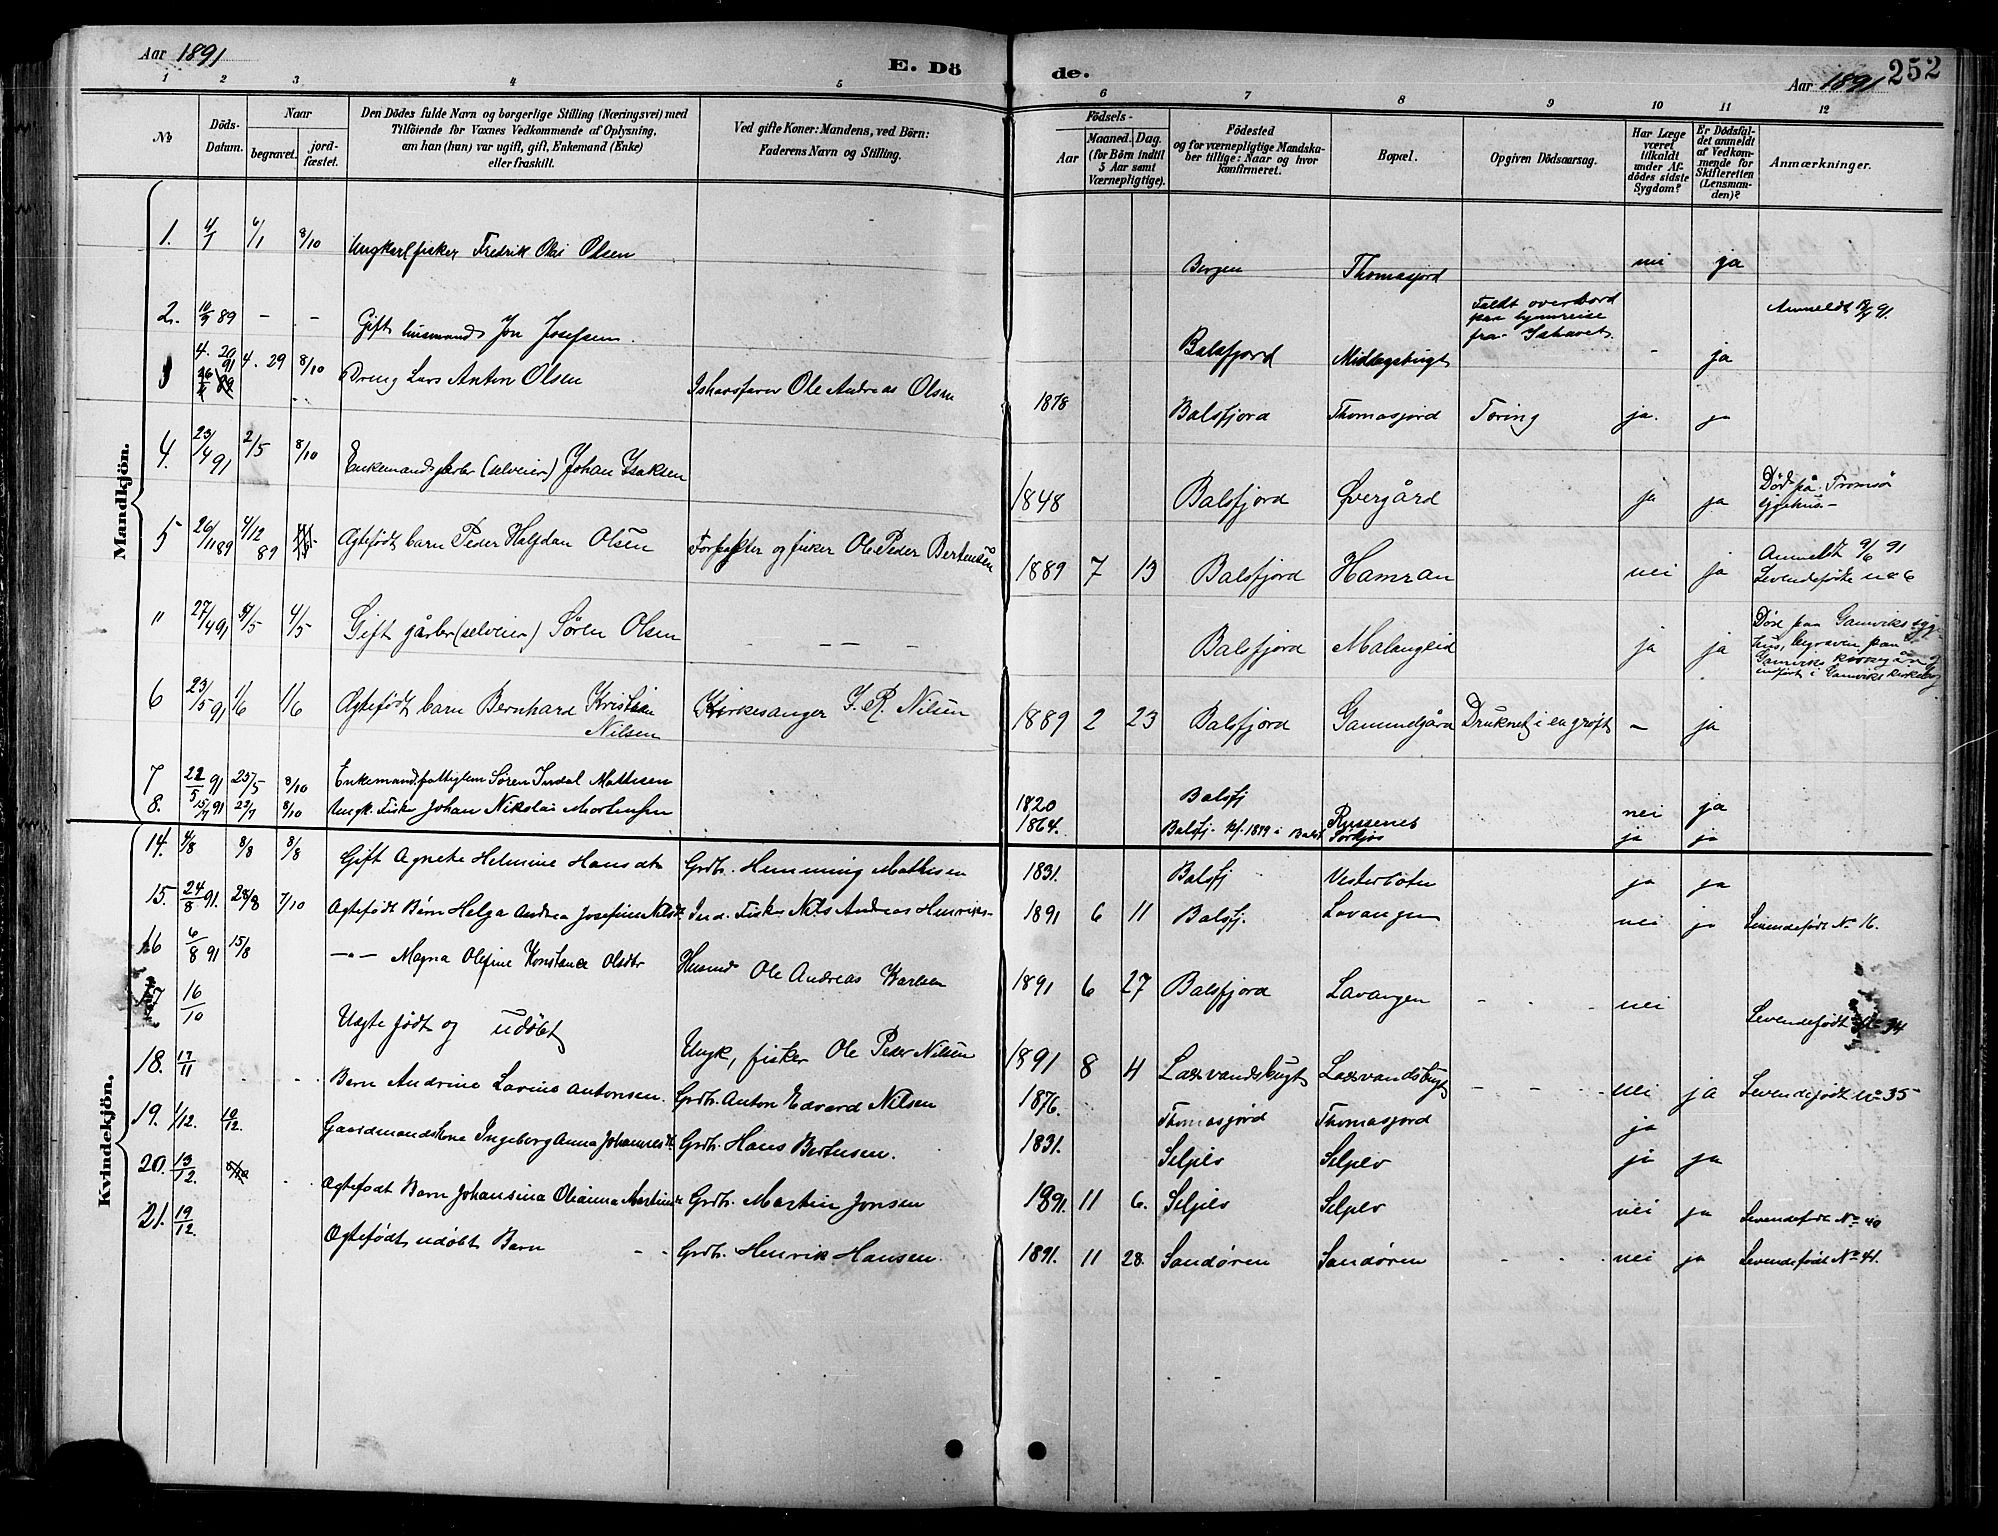 Aar 1891
E. Dö
de.
Aar 1891
252
1 2 3 4 5 6 7 8 9 10 11 12
No
Döds-
Datum.
Naar
begravet.
jord-
fæstet.
Den Dödes fulde Navn og borgerlige Stilling (Næringsvei) med
Tilföiende for Voxnes Vedkommende af Oplysning,
om han (hun) var ugift, gift, Enkemand (Enke)
eller fraskilt.
Ved gifte Koner: Mandens, ved Börn:
Faderens Navn og Stilling.
Födsels-
Aar
Maaned. Dag.
(for Börn indtil
5 Aar samt
Værnepligtige).
Födested
og for værnepligtige Mandska-
ber tillige: Naar og hvor
konfirmeret.
Bopæl.
Opgiven Dödsaarsag.
Har Læge
været
tilkaldt
under Af-
dödes sidste
Sygdom?
Er Dödsfal-
det anmeldt
af Vedkom-
mende for
Skifteretten
(Lensman-
den)?
Anmærkninger.
Mandkjön.
1. 4/1 6/1 8/10 Ungkarl fisker Fredrik Olai Olsen Bergen Thomasjord nei ja
2. 10/9 89 - - Gift husmand Jon Josefsen. Balsfjord Middagsbugt Faldt overbord
paa hjemreise
fra Ishavet. - ja Anmeldt 91.
4. 29 8/10 Dreng Lars Anton Olsen Ishavsfarer Ole Andreas Olsen 1878 Balsfjord Thomasjord Tæring ja. ja
4. 23/4 91 2/5 8/10 Enkemand (selveier) Johan Isaksen 1848 Balsfjord Øvergård ja ja Død på Tromsø
sygehus-
5 26/11 89 4/12 89 Ægtefødt barn Peder Halfdan Olsen Forpagter og fisker Ole Peder Bertensen 1889 7 13 Balsfjord Hamran nei ja Anmeldt 9/6 91
Levendefødte no 6
" 27/4 91 5/5 4/5 Gift gårbr (selveier) Søren Olsen - - - Balsfjord Malangseid ja ja Død paa Gamviks syge
hus, begraven paa
Gamviks kirkegård og
indført i Gamviks kirkebog
6 23/5 91 1/6 1/6 Ægtefødt barn Bernhard Kristian
Nilsen Kirkesanger J. R. Nilsen 1889 2 23 Balsfjord Gamundgård Druknet i en grøft - ja
7 22/5 91 23/5 8/10 Enkemand, fattiglem Søren Indal Mathisen 1820 Balsfj Russenes nei ja
8. 15/7 91 23/7 8/10 Ungk. Fisker Johan Nikolai Mortensen 1864. Balsfj. kf. 1879 i Balsf. ja ja
Kvindekjön.
14. 4/8 8/8 8/8 Gift Agnete Helmine Hansdt Grdbr. Hemming Mathisen 1831. Balsfj Vesterbotn ja ja
15. 24/8 91. 28/8 7/10 Ægtefødt Børn Helga Andrea Josefine Nilsdt Ind. Fisker Nils Andreas Henriks- 1891 6 11 Balsfj. Lavangen nei ja Levendefødt No 16.
16 6/8 91 15/8 -"- Magna Olefine Konstanse Olsdtr Husmd Ole Andreas Karlsen 1891 6 27 Balsfjord Lavangen - - nei
17 16/10 Uægte født og udøbt Ungk, fisker Ole Peder Nilsen 1891 8 4 Laxvandsbugt Laxvandsbugt - - nei ja Levendefødt No 34
18. 17/11 Barn Andrine Lavine Antonsen. Grdbr. Anton Edvard Nilsen 1876. Thomasjord Thomasjord ja Levendefødt No 35
19. 1/12. 10/12. Gaardmandskone Ingeborg Anna Johannesdt. Grdbr. Hans Bertheusen. 1831. Seljelv Seljelv ja ja
20. 13/12. Ægtefødt Barn Johansina Olianna Martinsdt. Grdbr. Martin Jonsen 1891. 11 6. Seljelv Seljelv nei ja Levendefødt No 40
21. 19/12. Ægtefødt udøbt Barn - - Grdbr. Henrik Hansen. 1891. 11 28. Sandøren Sandøren - - nei ja Levendefødt No 41.